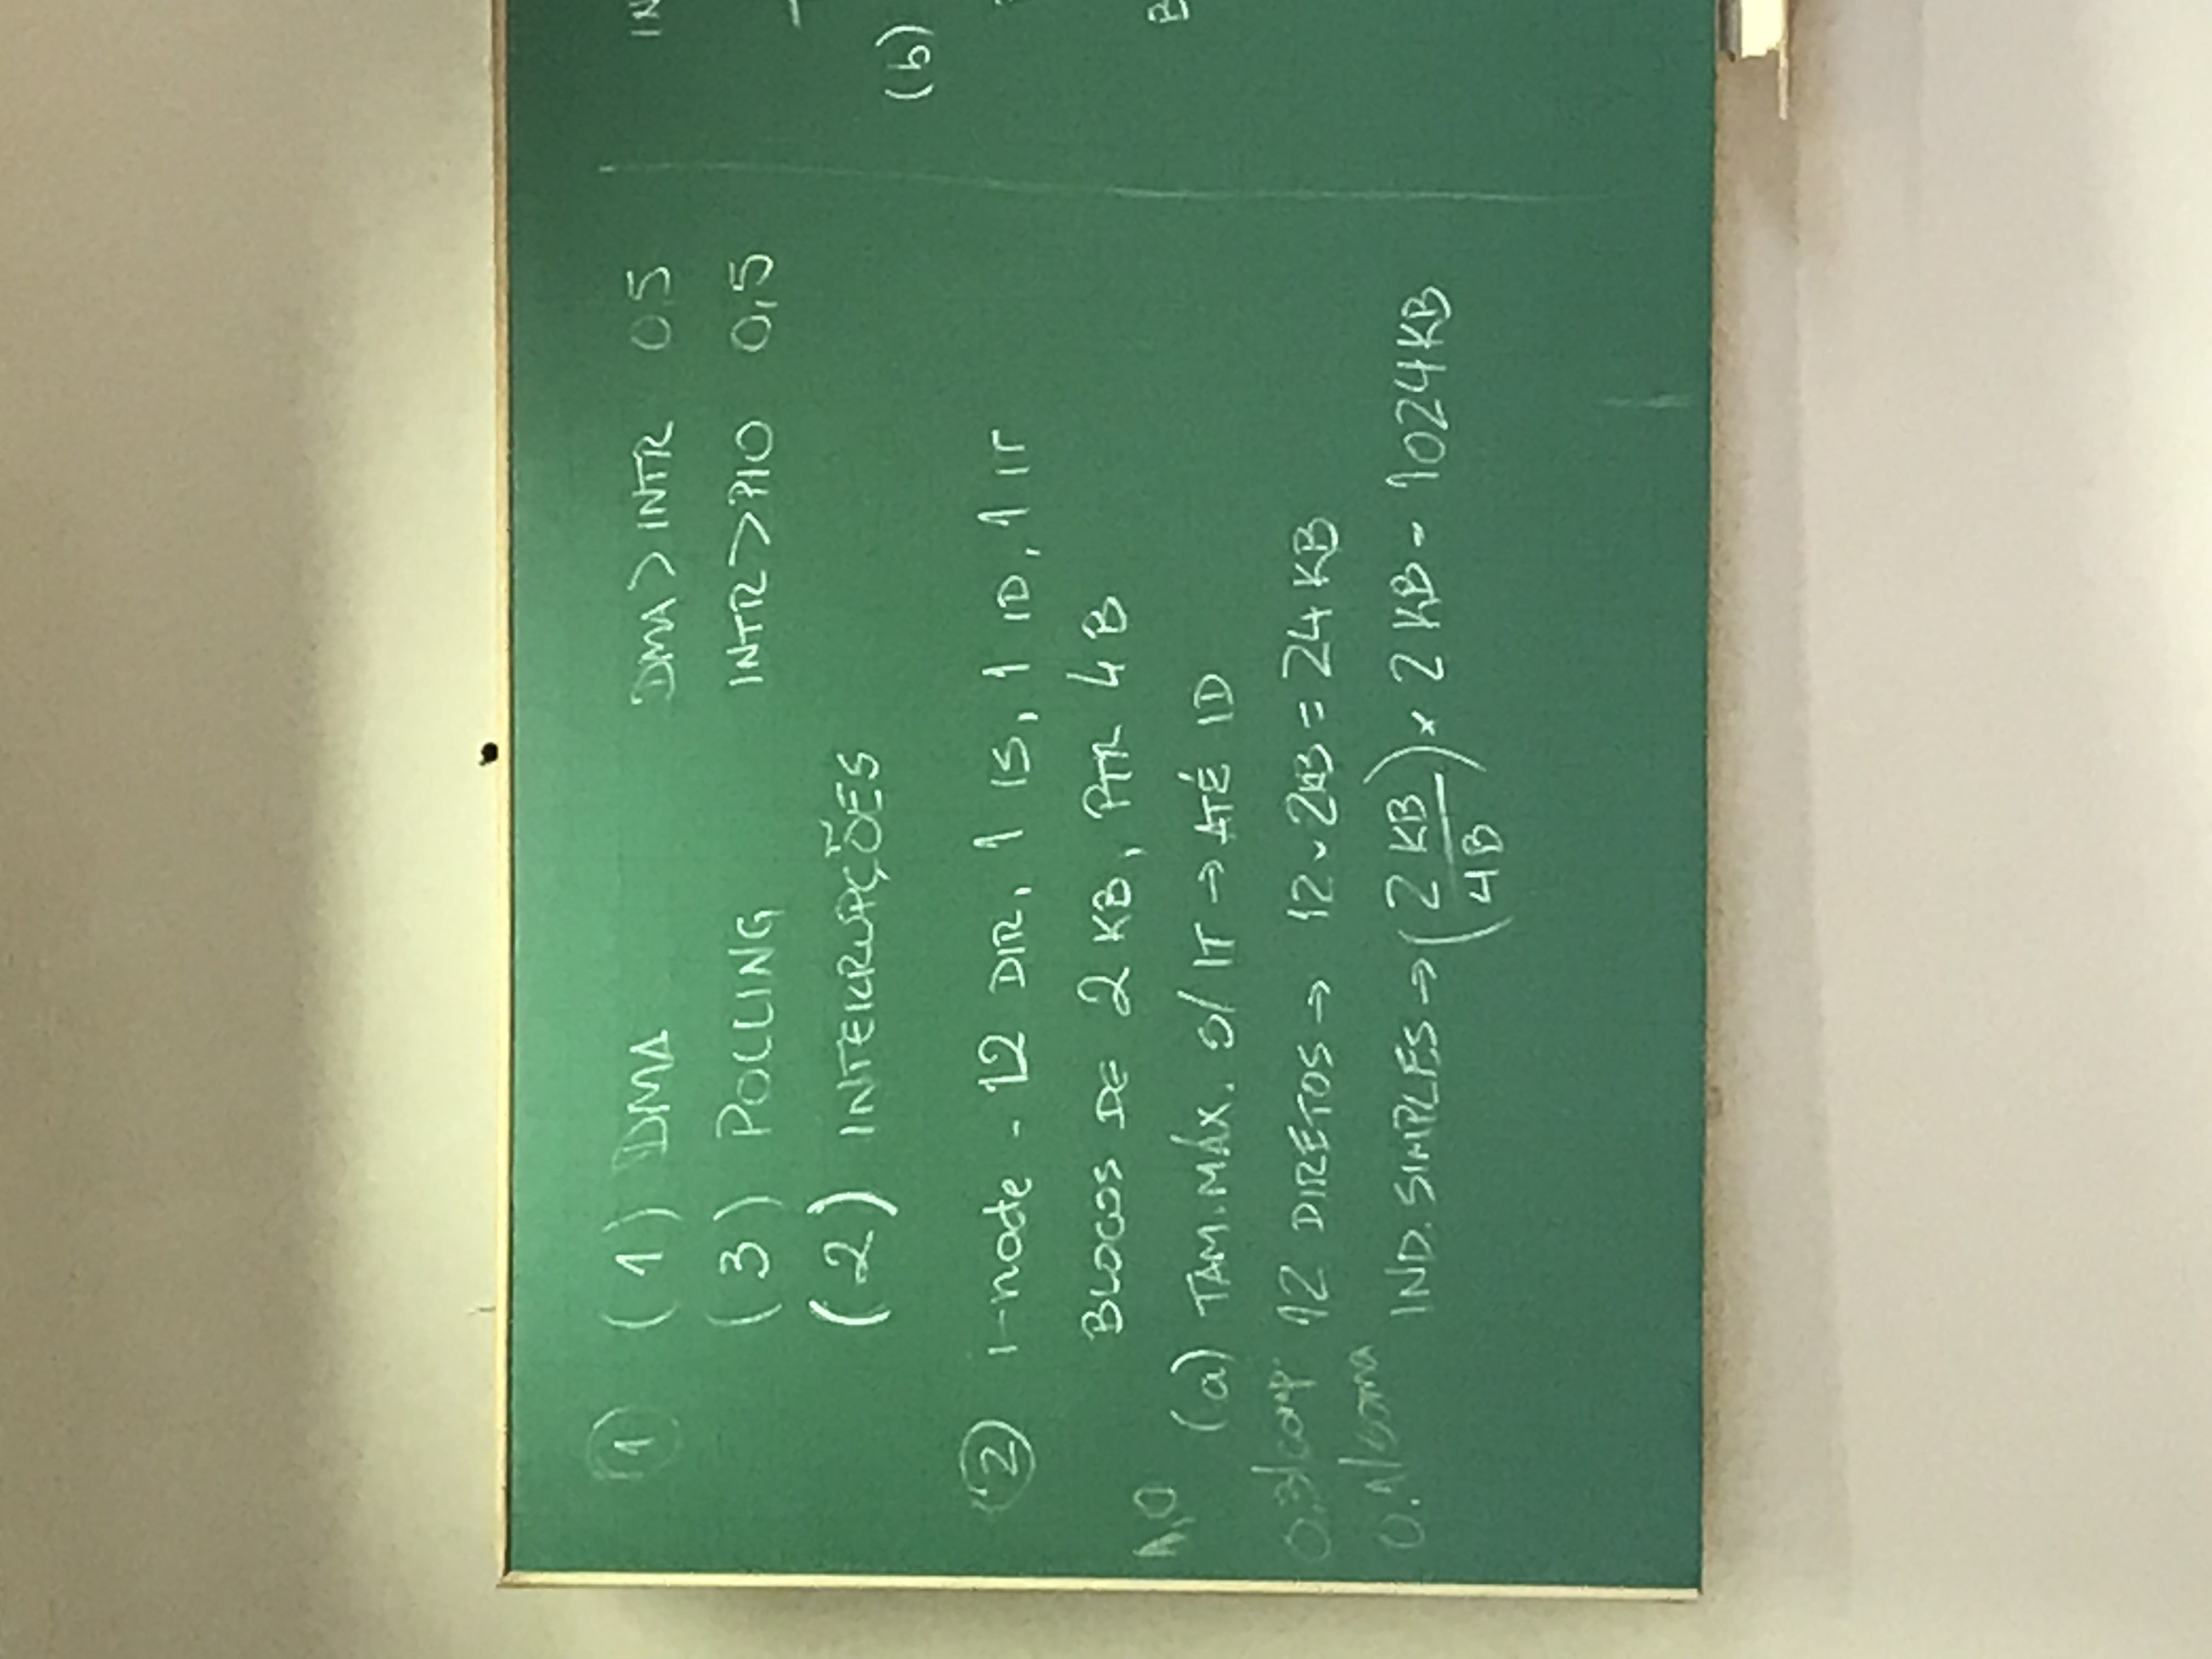 1 (1) DMA DMA > INTR 0,5
(3) POLLING INTR > PIO 0,5
(2) INTERRUPÇÕES
2 i-node - 12 DIR, 1 IS, 1 ID, 1 IT
BLOCOS DE 2 KB, PTR 4 B
1,0
(a) TAM. MÁX. S/ IT → ATÉ ID
0,3/comp. 12 DIRETOS → 12 × 2KB = 24 KB
0,1/soma
IND. SIMPLES → (2 KB / 4B) × 2 KB = 1024 KB
IN
(b)
B